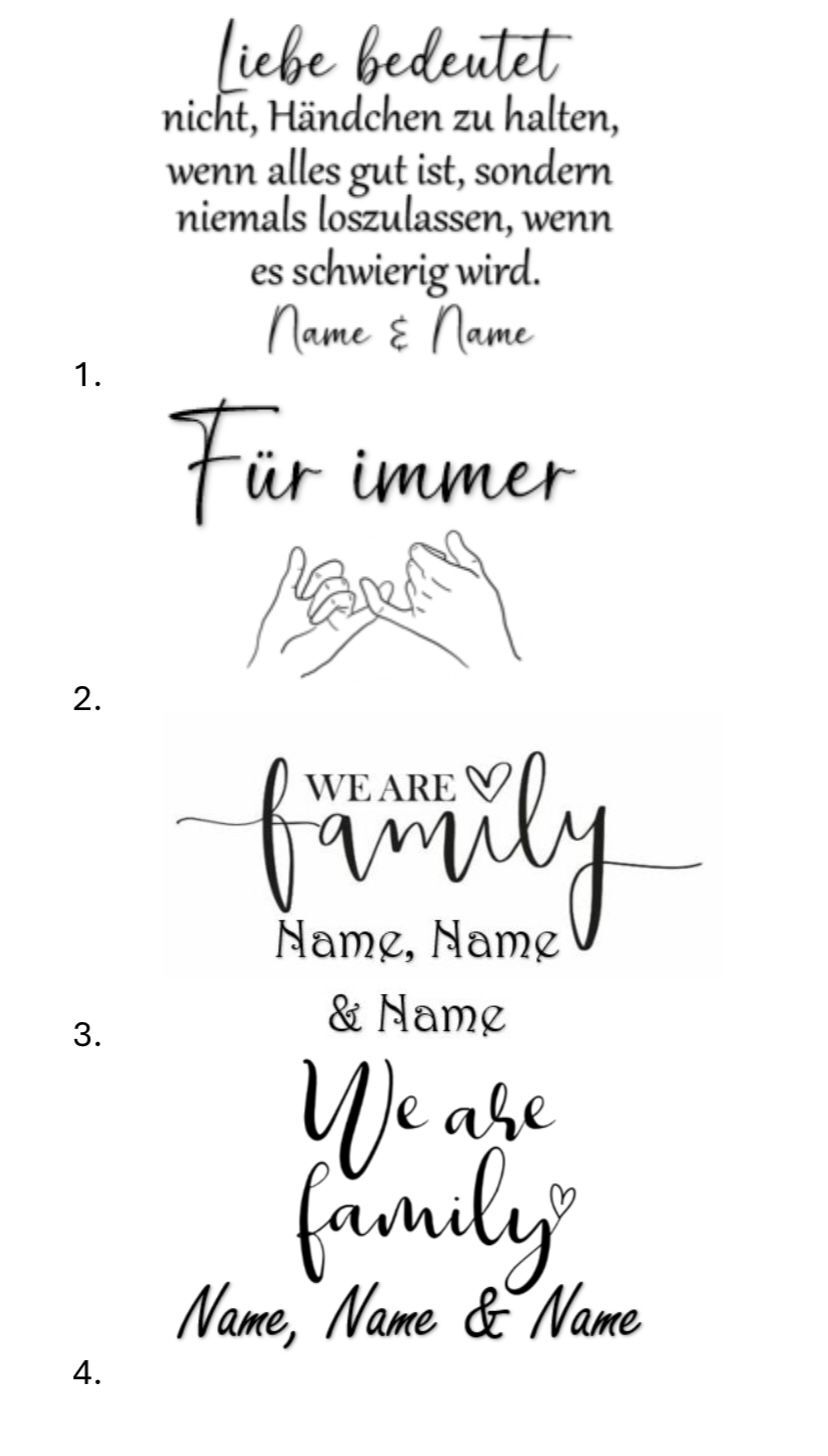 Liebe bedeutet
nicht, Händchen zu halten,
wenn alles gut ist, sondern
niemals loszulassen, wenn
es schwierig wird.
Name & Name
1.
Für immer
2.
WE ARE
family
Name, Name
& Name
3.
We are
family
Name, Name & Name
4.